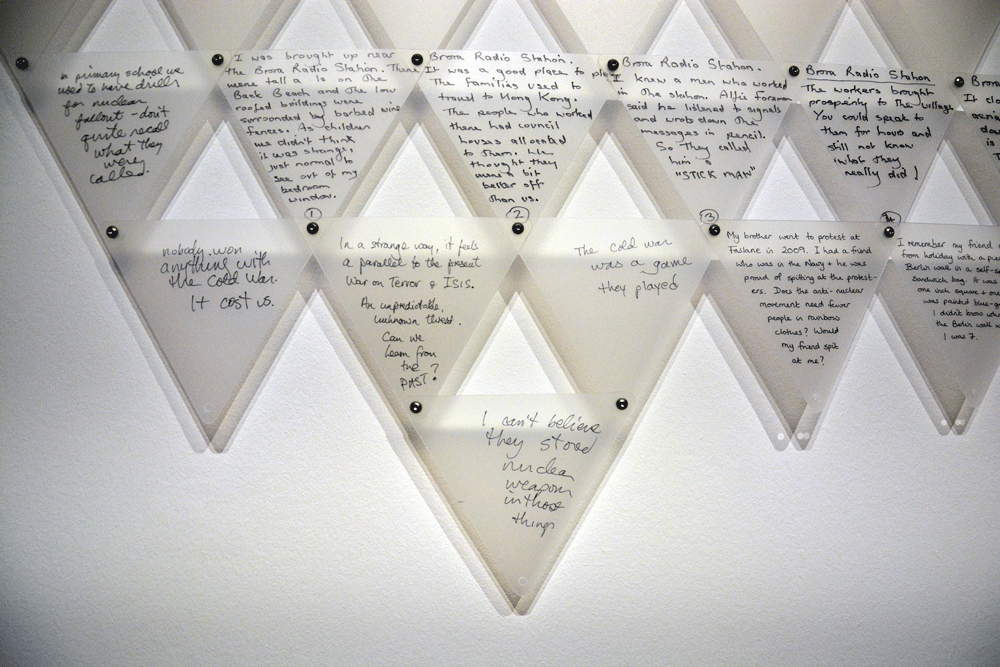 in primary school we
used to have drills
for nuclear
fallout - don't
quite recall
what they
were
called.
I was brought up near
the Brora Radio Station. There
were tall a is on the
Back Beach and the low
roofed buildings were
surrounded by barbed wire
fences. As children
we didn't think
it was strange,
just normal to
see out of my
bedroom
window.
1
Brora Radio Station.
It was a good place to
The families used to
travel to Hong Kong.
The people who worked
there had council
houses allocated
to them. We
thought they
were a bit
better off
than us.
2
Brora Radio Station.
I knew a man who worked
in the station. Alfie
said he listened to signals
and wrote down the
messages in pencil.
So they called
him a
"STICK MAN"
3
Brora Radio Station
The workers brought
prosperity to the village
You could speak to
them for hours and
still not know
what they
really did!
It
is
nobody won
anything with
the cold war.
It cost us.
In a strange way, it feels
a parallel to the present
War on Terror & ISIS.
An unpredictable,
unknown threat.
Can we
learn from
the
PAST?
The cold war
was a game
they played
My brother went to protest at
Faslane in 2009. I had a friend
who was in the Navy + he was
proud of spiting at the protest-
ers. Does the anti-nuclear
movement need fewer
people in rainbow
clothes? Would
my friend spit
at me?
I remember my friend
from holiday with a
Berlin wall in a self-
sandwich bag. It was
one inch square + one
was painted blue-
I didn't know
the Berlin wall
I was 7.
I can't believe
they stored
nuclear
weapons
in those
things